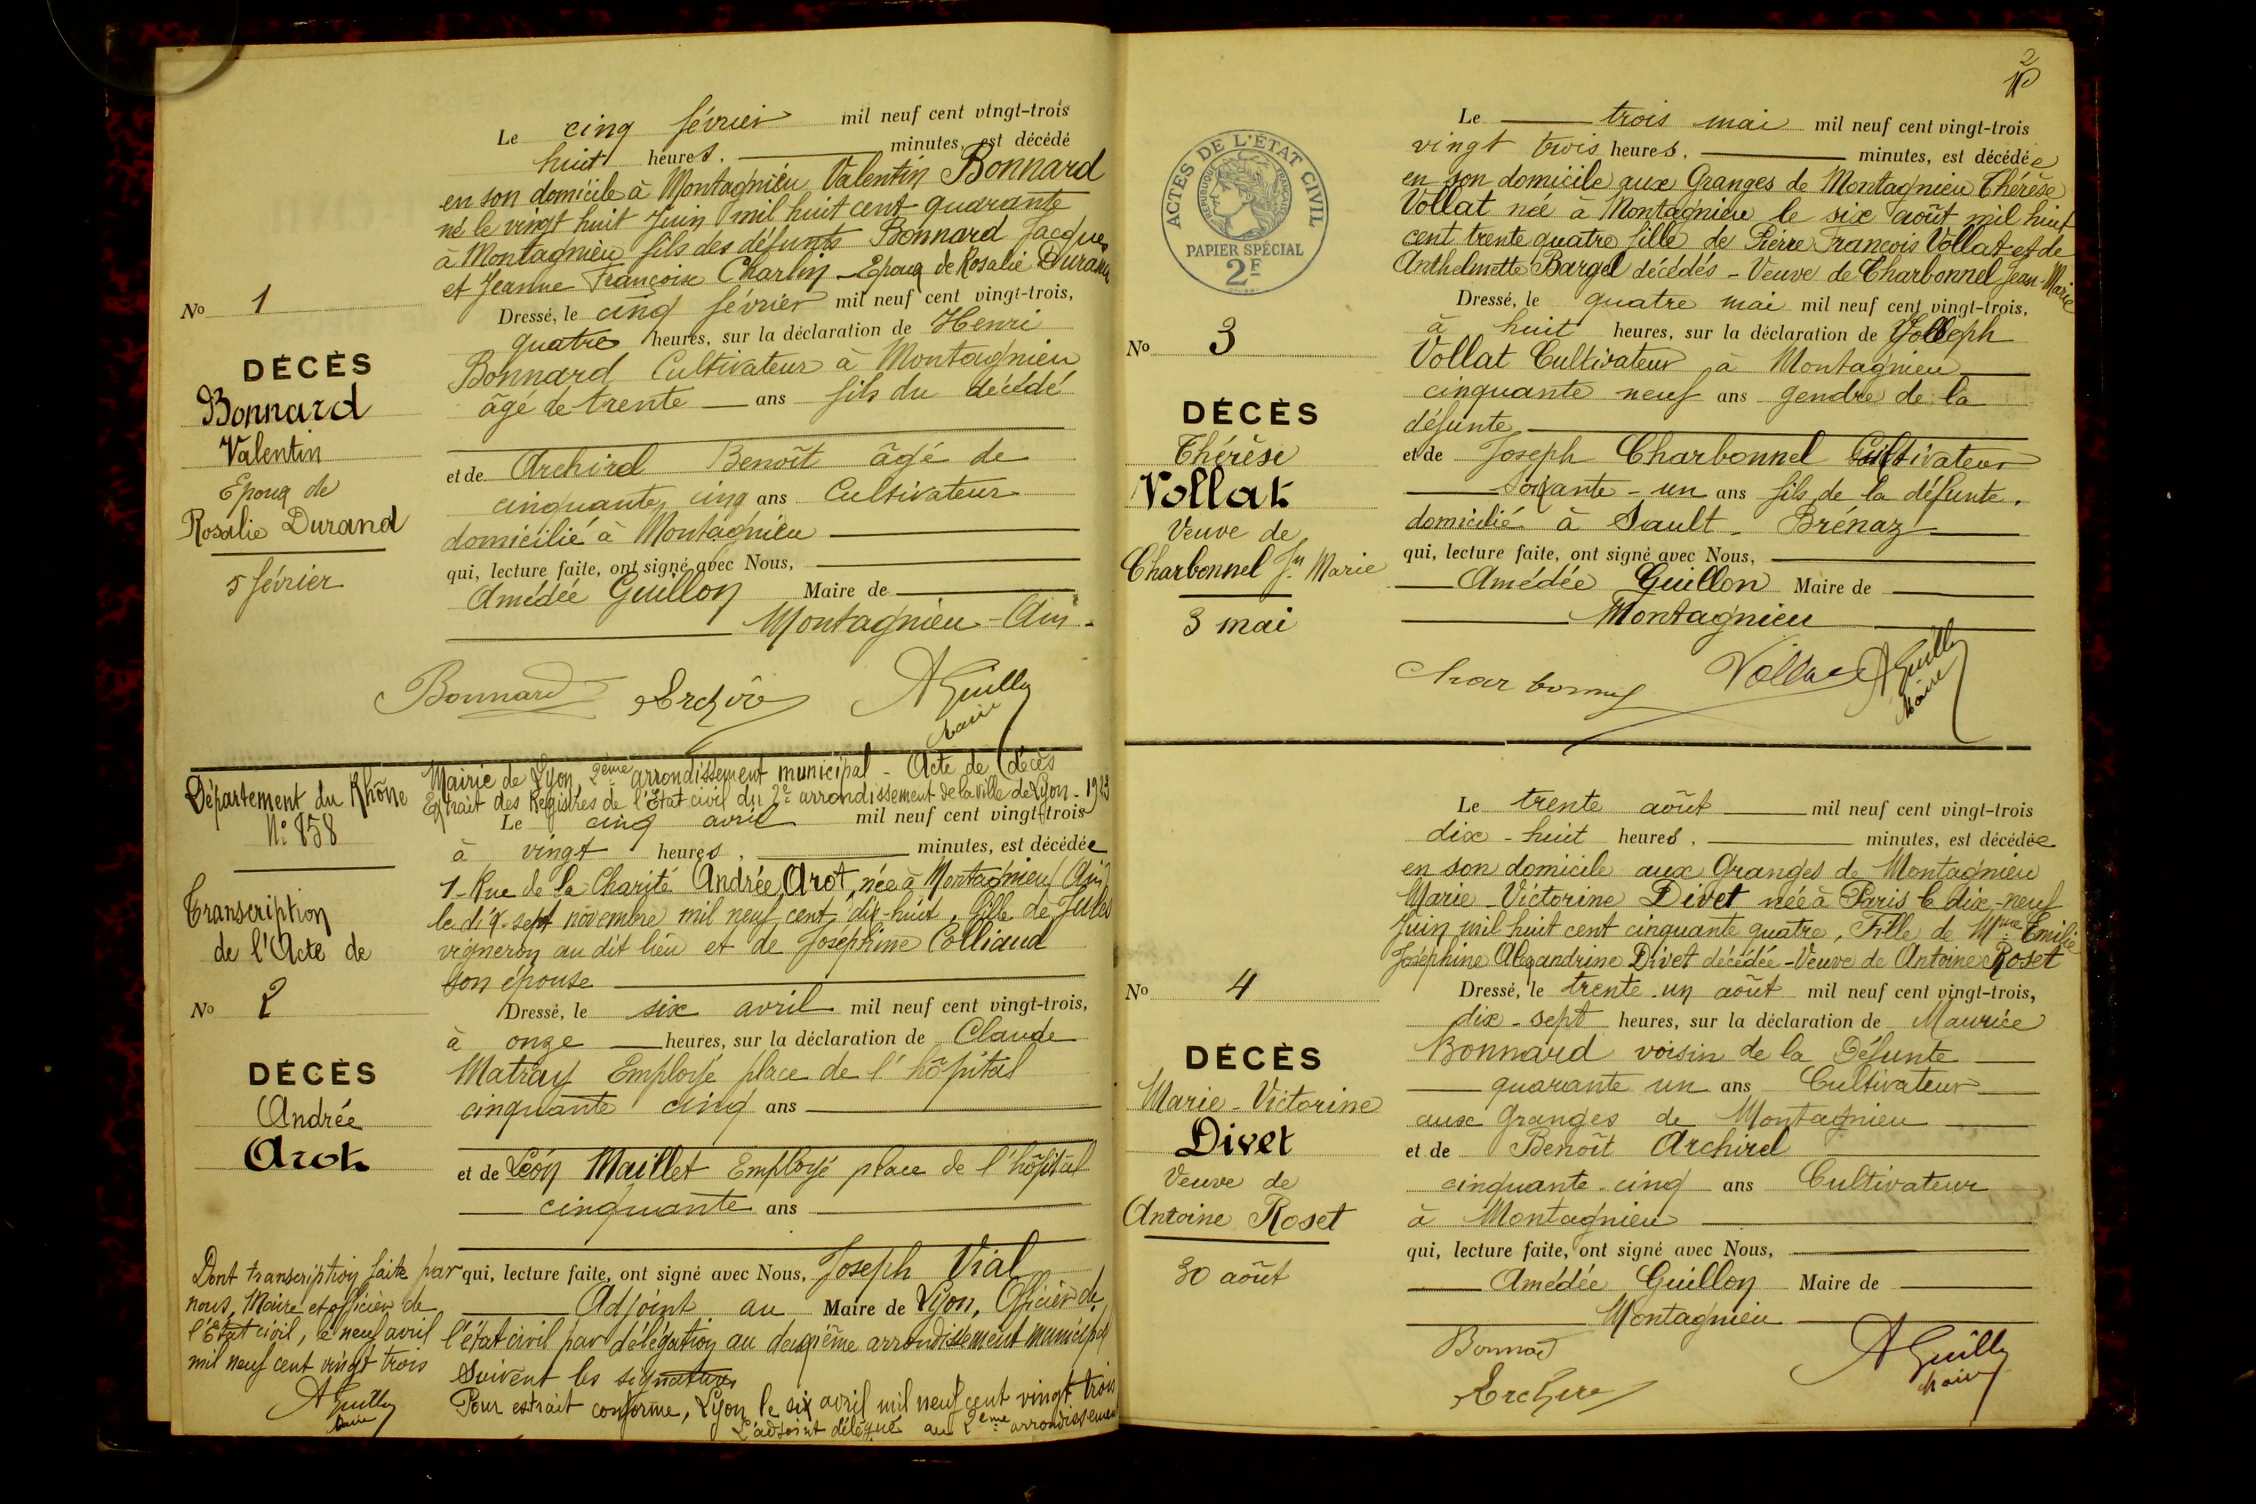 Le cinq février mil neuf cent vingt-trois
huit heures. minutes, est décédé
en son domicile à Montagnieu Valentin Bonnard
né le vingt huit Juin mil huit cent quarante
à Montagnieu fils des défunts Bonnard Jacques
et Jeanne Françoise Charlin - Epoux de Rosalie Durand
No 1
DÉCÈS
Bonnard
Valentin
Epoux de
Rosalie Durand
5 février
Dressé, le cinq février mil neuf cent vingt-trois,
quatre heures, sur la déclaration de Henri
Bonnard Cultivateur à Montagnieu
âgé de trente ans fils du décédé
et de Archirel Benoît âgé de
cinquante cinq ans Cultivateur
domicilié à Montagnieu
qui, lecture faite, ont signé avec Nous,
Amédée Guillon Maire de
Montagnieu - Ain.
Bonnard A Guillon
Maire
Département du Rhône
N° 858
Transcription
de l'Acte de
No 2
DÉCÈS
Andrée
Arot
Dont transcription faite par
nous, Maire et officier de
l'Etat civil, le neuf avril
mil neuf cent vingt trois
A Guillon
Maire
Mairie de Lyon, 2ème arrondissement municipal - Acte de décès
Extrait des Registres de l'Etat civil du 2e arrondissement de la ville de Lyon - 1923
Le cinq avril mil neuf cent vingt-trois
à vingt heures, minutes, est décédée
1 - Rue de la Charité Andrée Arot, née à Montagnieu (Ain)
le dix-sept novembre mil neuf cent dix-huit, fille de Jules
vigneron au dit lieu et de Joséphine Colliaud
son épouse
Dressé, le six avril mil neuf cent vingt-trois,
à onze heures, sur la déclaration de Claude
Matray Employé place de l'hôpital
cinquante cinq ans
et de Léon Maillet Employé place de l'hôpital
cinquante ans
qui, lecture faite, ont signé avec Nous, Joseph Vial
Adjoint au Maire de Lyon, Officier de
l'état civil par délégation au deuxième arrondissement municipal
Suivent les signatures
Pour extrait conforme, Lyon le six avril mil neuf cent vingt trois
L'adjoint délégué au 2eme arrondissement
2
ACTES DE L'ÉTAT CIVIL
RÉPUBLIQUE FRANÇAISE
PAPIER SPÉCIAL
2F
No 3
DÉCÈS
Thérèse
Vollat
Veuve de
Charbonnel Jn Marie
3 mai
Le trois mai mil neuf cent vingt-trois
vingt trois heures. minutes, est décédée
en son domicile aux Granges de Montagnieu Thérèse
Vollat née à Montagnieu le six août mil huit
cent trente quatre fille de Pierre François Vollat et de
Anthelmette Bargel décédés - Veuve de Charbonnel Jean-Marie
Dressé, le quatre mai mil neuf cent vingt-trois,
à huit heures, sur la déclaration de Joseph
Vollat Cultivateur à Montagnieu
cinquante neuf ans gendre de la
défunte
et de Joseph Charbonnel Cultivateur
soixante - un ans fils de la défunte.
domicilié à Sault - Brénaz
qui, lecture faite, ont signé avec Nous,
Amédée Guillon Maire de
Montagnieu
Charbonnel Vollat A Guillon
Maire
No 4
DÉCÈS
Marie - Victorine
Divet
Veuve de
Antoine Roset
30 août
Le trente août mil neuf cent vingt-trois
dix - huit heures. minutes, est décédée
en son domicile aux Granges de Montagnieu
Marie - Victorine Divet née à Paris le dix-neuf
Juin mil huit cent cinquante quatre, Fille de Mme Emilie
Joséphine Alexandrine Divet décédée - Veuve de Antoine Roset
Dressé, le trente-un août mil neuf cent vingt-trois,
dix - sept heures, sur la déclaration de Maurice
Bonnard voisin de la Défunte
quarante un ans Cultivateur
aux Granges de Montagnieu
et de Benoît Archirel
cinquante-cinq ans Cultivateur
à Montagnieu
qui, lecture faite, ont signé avec Nous,
Amédée Guillon Maire de
Montagnieu
Bonnard A Guillon
Maire